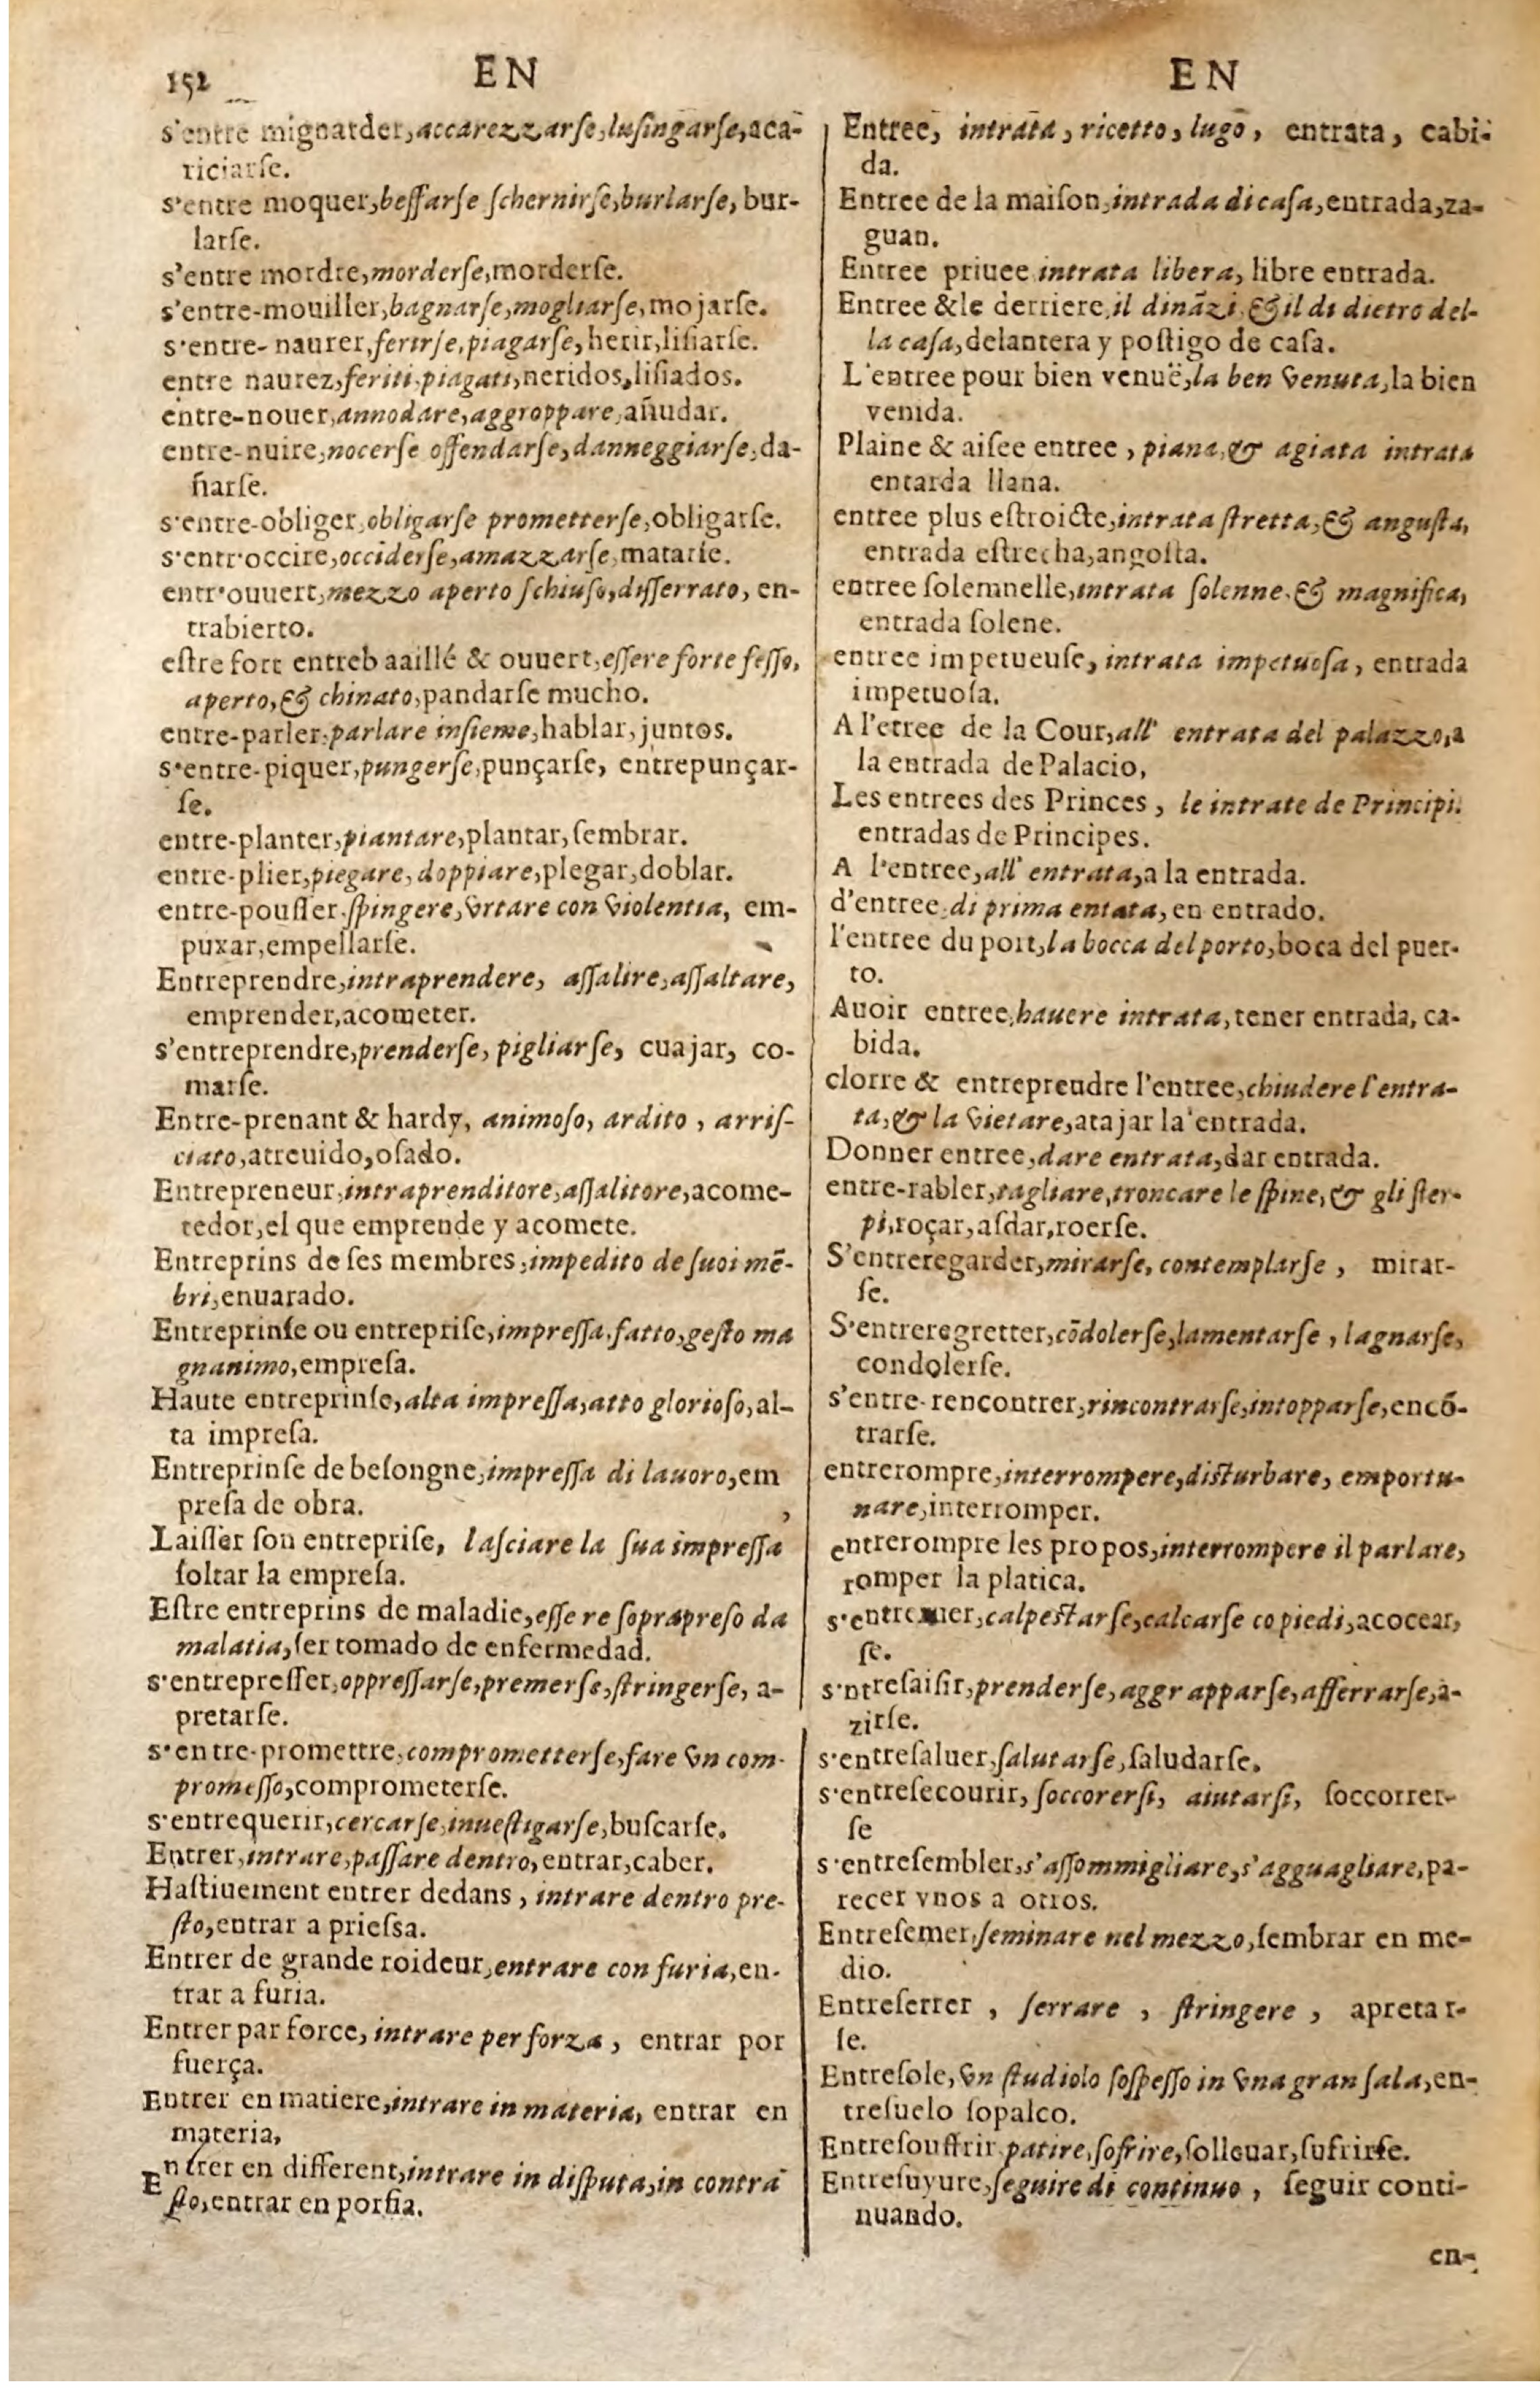 152 EN EN
s'entre mignarder, accarezzarſe, luſingarſe, aca-
riciarſe.
s'entre moquer, beffarſe ſchernirſe, burlarſe, bur-
larſe.
s'entre mordre, morderſe, morderſe.
s'entre-mouiller, bagnarſe, mogliarſe, mojarſe.
s'entre-naurer, ferirſe, piagarſe, herir, liſiarſe.
entre naurez, feriti, piagati, heridos, liſiados.
entre-nouer, annodare, aggroppare, añudar.
entre-nuire, nocerſe offendarſe, danneggiarſe, da-
ñarſe.
s'entre-obliger, obligarſe prometterſe, obligarſe.
s'entr'occire, occiderſe, amazzarſe, matarſe.
entr'ouuert, mezzo aperto ſchiuſo, diſſerrato, en-
trabierto.
eſtre fort entreb aaillé & ouuert, eſſere forte feſſo,
aperto, & chinato, pandarſe mucho.
entre-parler, parlare inſieme, hablar, juntos.
s'entre-piquer, pungerſe, punçarſe, entrepunçar-
ſe.
entre-planter, piantare, plantar, ſembrar.
entre-plier, piegare, doppiare, plegar, doblar.
entre-pouſſer, ſpingere, vrtare con violentia, em-
puxar, empellarſe.
Entreprendre, intraprendere, aſſalire, aſſaltare,
emprender, acometer.
s'entreprendre, prenderſe, pigliarſe, cuajar, co-
marſe.
Entre-prenant & hardy, animoſo, ardito, arriſ-
ciato, atreuido, oſado.
Entrepreneur, intraprenditore, aſſalitore, acome-
tedor, el que emprende y acomete.
Entreprins de ſes membres, impedito de ſuoi mē-
bri, enuarado.
Entreprinſe ou entrepriſe, impreſſa, fatto, geſto ma
gnanimo, empreſa.
Haute entreprinſe, alta impreſſa, atto glorioſo, al-
ta impreſa.
Entreprinſe de beſongne, impreſſa di lauoro, em
preſa de obra.
Laiſſer ſon entrepriſe, laſciare la ſua impreſſa
ſoltar la empreſa.
Eſtre entreprins de maladie, eſſe re ſoprapreſo da
malatia, ſer tomado de enfermedad.
s'entrepreſſer, oppreſſarſe, premerſe, ſtringerſe, a-
pretarſe.
s'en tre-promettre, comprometterſe, fare vn com-
promeſſo, comprometerſe.
s'entrequerir, cercarſe, inueſtigarſe, buſcarſe.
Entrer, intrare, paſſare dentro, entrar, caber.
Haſtiuement entrer dedans, intrare dentro pre-
ſto, entrar a prieſsa.
Entrer de grande roideur, entrare con furia, en-
trar a furia.
Entrer par force, intrare per forza, entrar por
fuerça.
Entrer en matiere, intrare in materia, entrar en
materia,
Entrer en different, intrare in diſputa, in contra
ſto, entrar en porfia.
Entree, intrata, ricetto, lugo, entrata, cabi-
da.
Entree de la maiſon, intrada di caſa, entrada, za-
guan.
Entree priuee intrata libera, libre entrada.
Entree & le derriere, il dināzi, & il di dietro del-
la caſa, delantera y poſtigo de caſa.
L'entree pour bien venuë, la ben venuta, la bien
venida.
Plaine & aiſee entree, piana, & agiata intrata
entarda llana.
entree plus eſtroicte, intrata ſtretta, & anguſta,
entrada eſtrecha, angoſta.
entree ſolemnelle, intrata ſolenne, & magnifica,
entrada ſolene.
entree impetueuſe, intrata impetuoſa, entrada
impetuoſa.
A l'etree de la Cour, all' entrata del palazzo, a
la entrada de Palacio,
Les entrees des Princes, le intrate de Principi.
entradas de Principes.
A l'entree, all' entrata, a la entrada.
d'entree, di prima entata, en entrado.
l'entree du port, la bocca del porto, boca del puer-
to.
Auoir entree, hauere intrata, tener entrada, ca-
bida.
clorre & entreprendre l'entree, chiudere l'entra-
ta, & la vietare, atajar la entrada.
Donner entree, dare entrata, dar entrada.
entre-rabler, tagliare, troncare le ſpine, & gli ſter-
pi, roçar, aſdar, roerſe.
S'entreregarder, mirarſe, contemplarſe, mirar-
ſe.
S'entreregretter, cōdolerſe, lamentarſe, lagnarſe,
condolerſe.
s'entre-rencontrer, rincontrarſe, intopparſe, encō-
trarſe.
entrerompre, interrompere, diſturbare, emportu-
nare, interromper.
entrerompre les propos, interrompere il parlare,
romper la platica.
calpeſtarſe, calcarſe co piedi, acocear,
ſe.
s'ntreſaiſir, prenderſe, aggrapparſe, afferrarſe, a-
zirſe.
s'entreſaluer, ſalutarſe, ſaludarſe.
s'entreſecourir, ſoccorerſi, aiutarſi, ſoccorrer-
ſe
s'entreſembler, s'aſſommigliare, s'agguagliare, pa-
recer vnos a otros.
Entreſemer, ſeminare nel mezzo, ſembrar en me-
dio.
Entreſerrer, ſerrare, ſtringere, apretar-
ſe.
Entreſole, vn ſtudiolo ſoſpeſſo in vna gran ſala, en-
treſuelo ſopalco.
Entreſouffrir, patire, ſofrire, ſolleuar, ſufrirſe.
Entreſuyure, ſeguire di continuo, ſeguir conti-
nuando.
en-